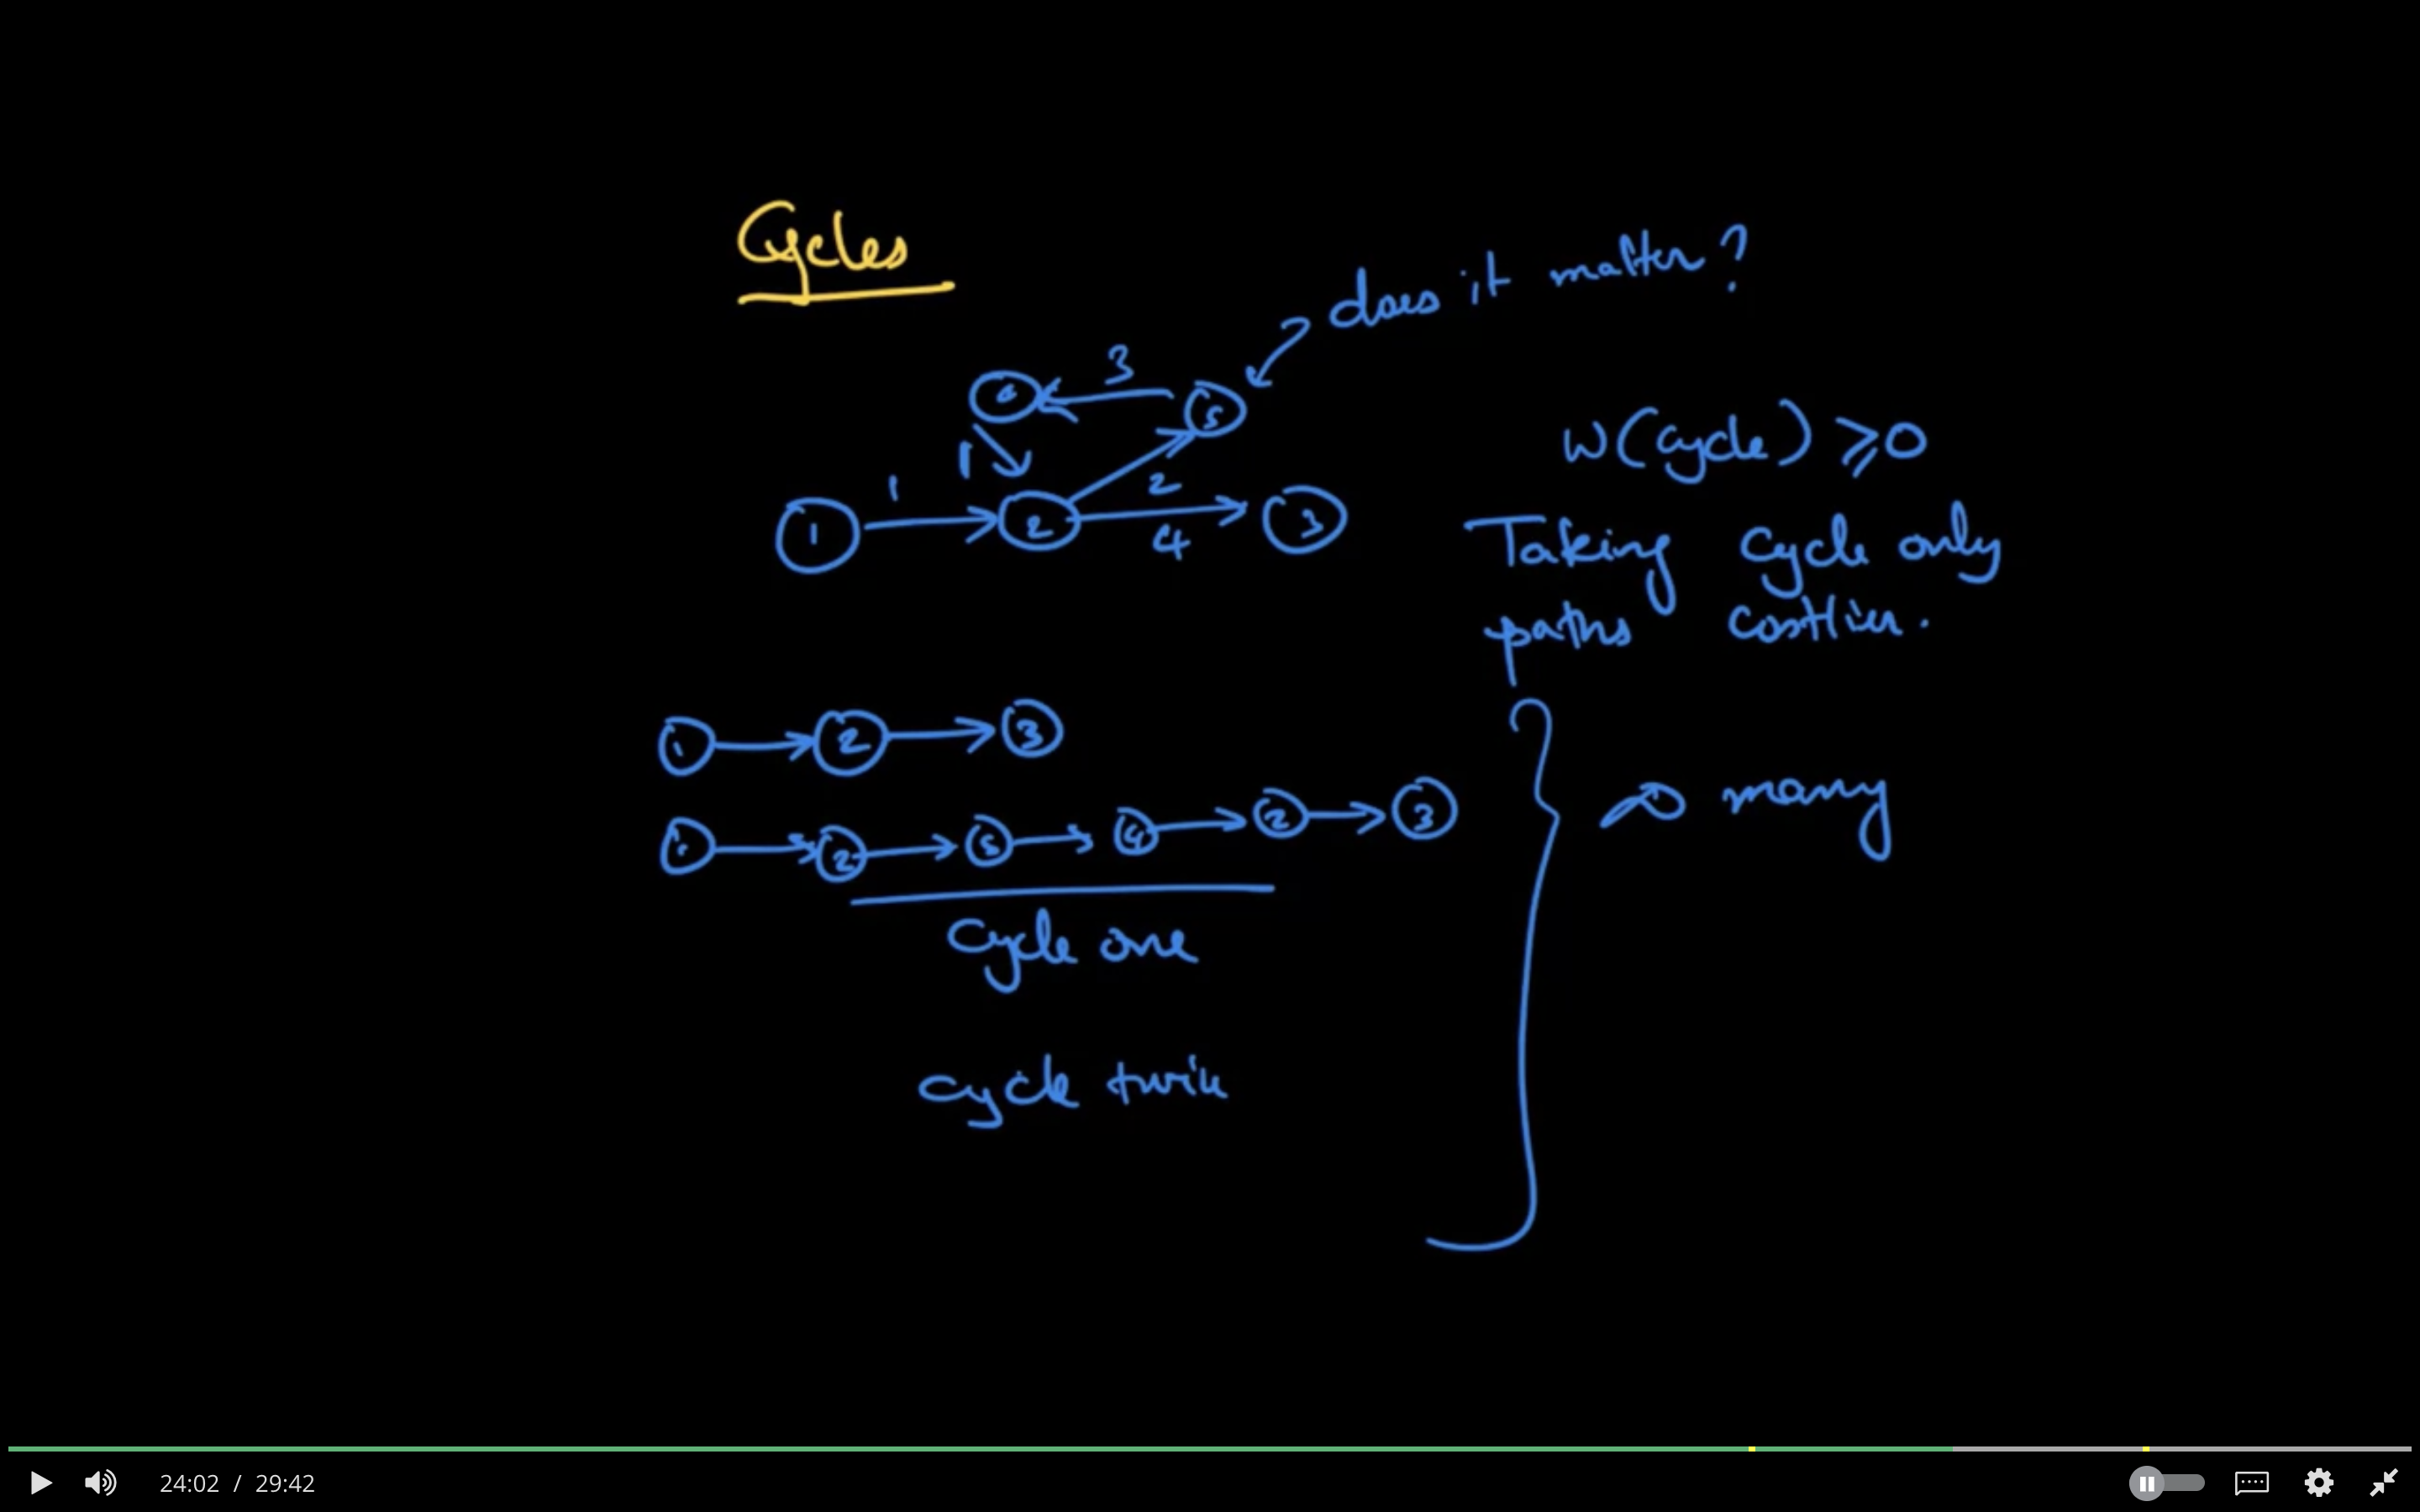 Cycles
does it matter?
3
4 5
1
1
2
1 2 3
4
w(cycle) ≥ 0
Taking cycle only
paths costlier.
1 2 3
1 2 5 4 2 3
∞ many
Cycle one
cycle twice
24:02 / 29:42